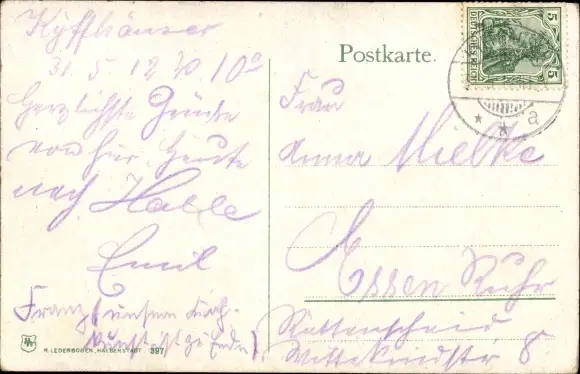 Kyffhäuser
31.5.12 10°
Herzlichste Grüße
von hier. Heute
nach Halle
Emil
Franz (unsern
ist zu Ende)
H. LEDERBOGEN, HALBERSTADT. 397
Postkarte.
DEUTSCHES REICH
5 5
a
Frau
Anna Mielke
Essen Ruhr
Rüttenscheid
Wittekindstr 8